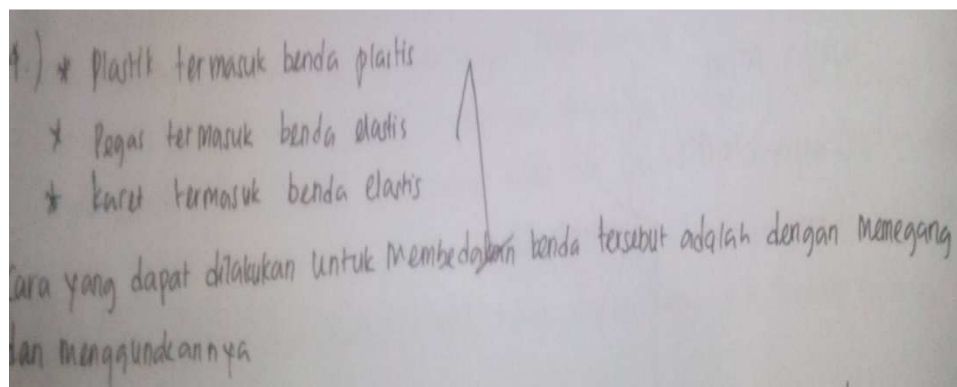 4.) * Plastik termasuk benda plastis
* Pegas termasuk benda elastis
* karet termasuk benda elastis
Cara yang dapat dilakukan untuk membedakan benda tersebut adalah dengan memegang
dan menggundcannya